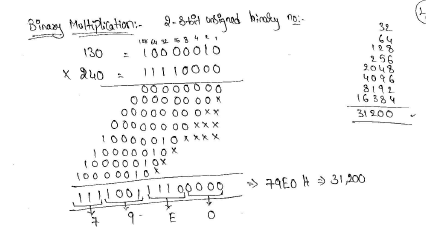 Binary Multiplication:- 2-8-bit unsigned binary no:-
128 64 32 16 8 4 2 1
130 = 10000010
X 240 = 11110000
00000000
0000000x
000000xx
00000xxx
10000010xxxx
10000010x
10000010x
10000010x
111100111100000 => 79E0 H => 31,200
7 9 E 0
32
64
128
256
2048
4096
8192
16384
31200